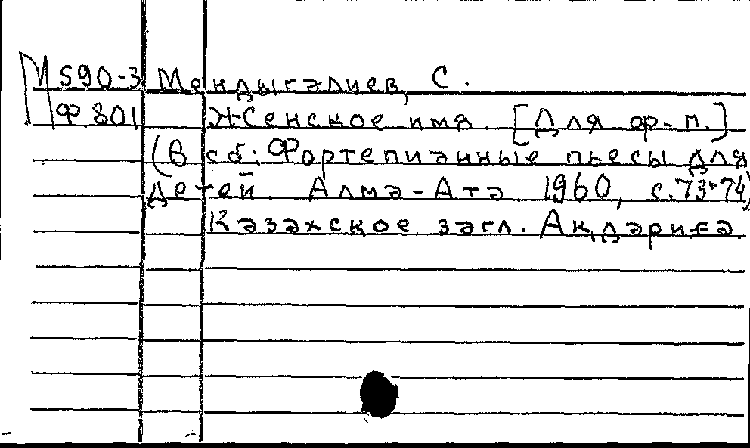 М 590-3 Мендыгалиев, С.
Ф 801 Женское имя. [Для ф-п.]
(В сб: Фортепианные пьесы для
детей. Алма-Ата 1960, с.73-74)
Казахское загл. Ақдариға.